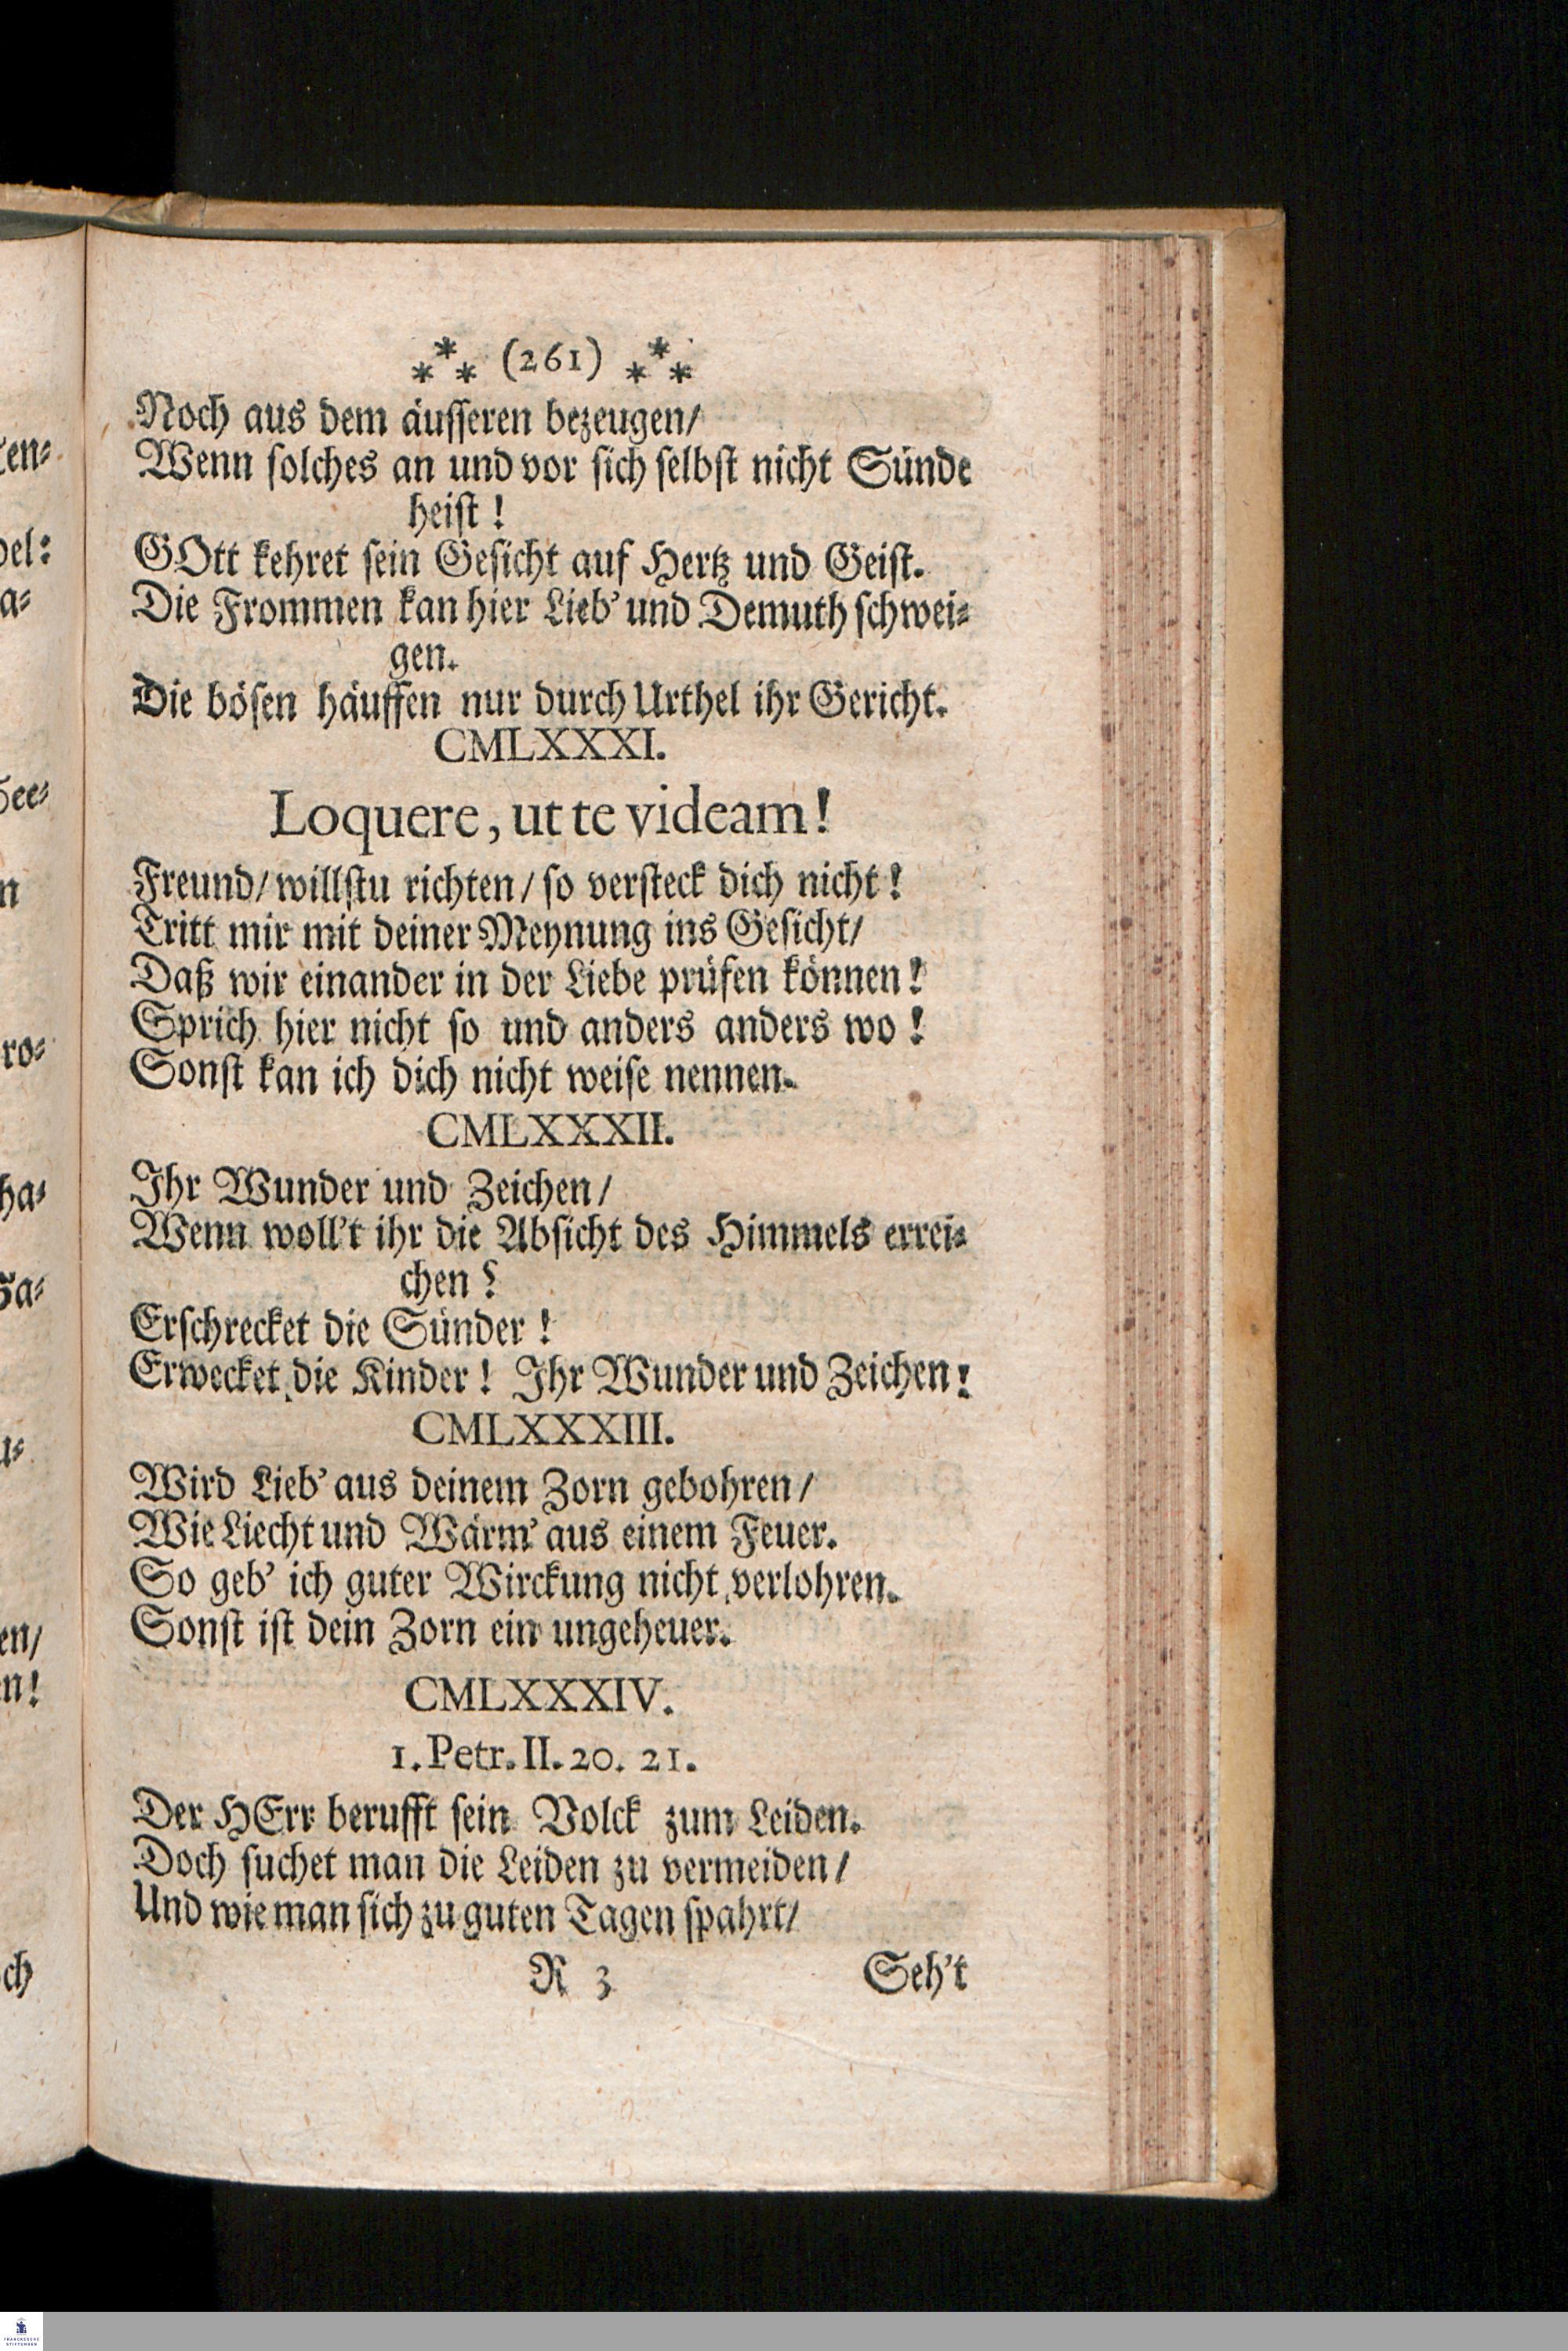 ⁂ (261) ⁂
Noch aus dem äusseren bezeugen/
Wenn solches an und vor sich selbst nicht Sünde
heist!
GOtt kehret sein Gesicht auf Hertz und Geist.
Die Frommen kan hier Lieb' und Demuth schwei-
gen.
Die bösen häuffen nur durch Urthel ihr Gericht.
CMLXXXI.
Loquere, ut te videam!
Freund/ willstu richten/ so versteck dich nicht!
Tritt mir mit deiner Meynung ins Gesicht/
Daß wir einander in der Liebe prüfen können!
Sprich hier nicht so und anders anders wo!
Sonst kan ich dich nicht weise nennen.
CMLXXXII.
Ihr Wunder und Zeichen/
Wenn woll't ihr die Absicht des Himmels errei-
chen?
Erschrecket die Sünder!
Erwecket die Kinder! Ihr Wunder und Zeichen!
CMLXXXIII.
Wird Lieb' aus deinem Zorn gebohren/
Wie Liecht und Wärm' aus einem Feuer.
So geb' ich guter Wirckung nicht verlohren.
Sonst ist dein Zorn ein ungeheuer.
CMLXXXIV.
1. Petr. II. 20. 21.
Der HErr berufft sein Volck zum Leiden.
Doch suchet man die Leiden zu vermeiden/
Und wie man sich zu guten Tagen spahrt/
R 3 Seh't
FRANCKESCHE
STIFTUNGEN